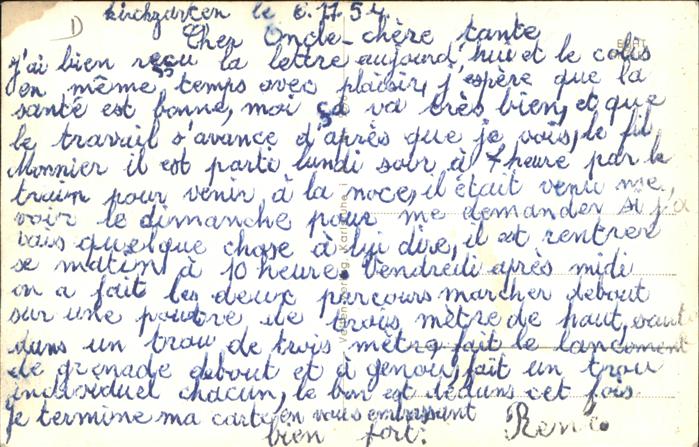 Kirchzarten le 6.11.54.
D
Cher Oncle - chère tante
J'ai bien reçu la lettre aujourd'hui et le colis
en même temps avec plaisir, j'espère que la
santé est bonne, moi ça va très bien, et que
le travail s'avance d'après que je vois, le fil
Monnier il est parti lundi soir à 7 heure par le
train pour venir à la noce, il était venu me
voir le dimanche pour me demander si j'a
vais quelque chose à lui dire, il est rentrer
se matin à 10 heure. Vendredi après midi
on a fait les deux parcours marcher debout
sur une poudre de trois mètre de haut, saut
dans un trou de trois mètre, fait le lancement
de grenade debout et à genou, fait un trou
individuel chacun, le bon est dedans cet fois
je termine ma carte en vous embrassant
bien fort. René